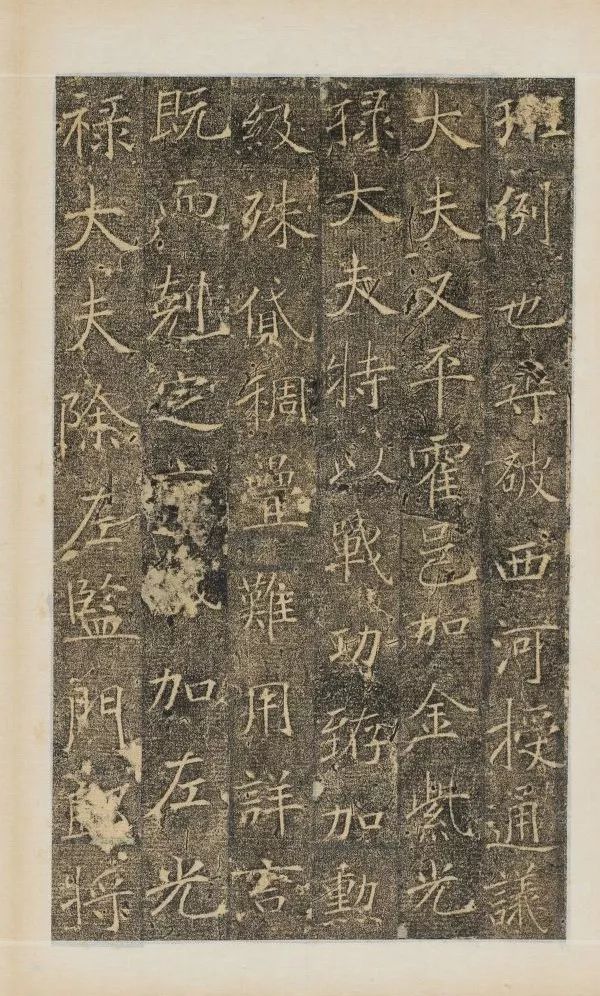 班例也尋破西河授通議
大夫又平霍邑加金紫光
祿大夫特以戰功跻加勳
級殊貸稠疊難用詳言
既而剋定京城加左光
祿大夫除左監門郎將